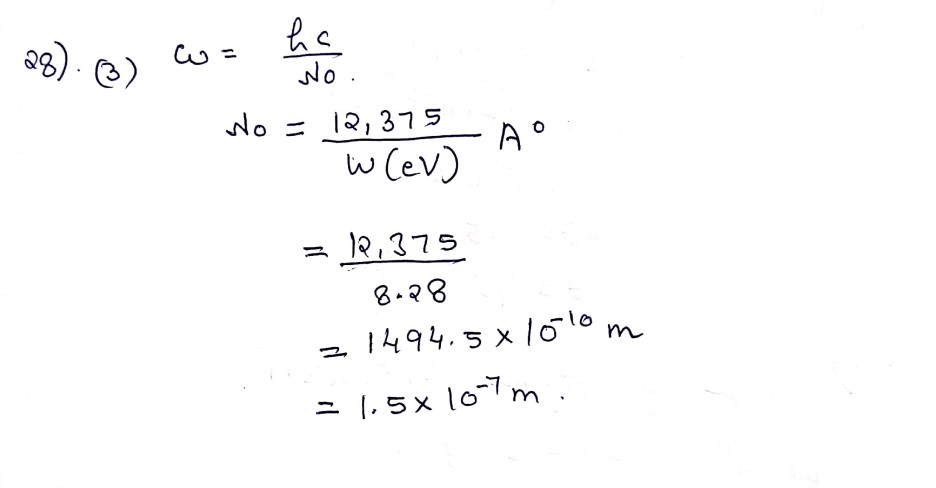 28). (3) W = hc / λo.
λo = 12,375 / W (eV) A°
= 12,375 / 8.28
= 1494.5 x 10^-10 m
= 1.5 x 10^-7 m.